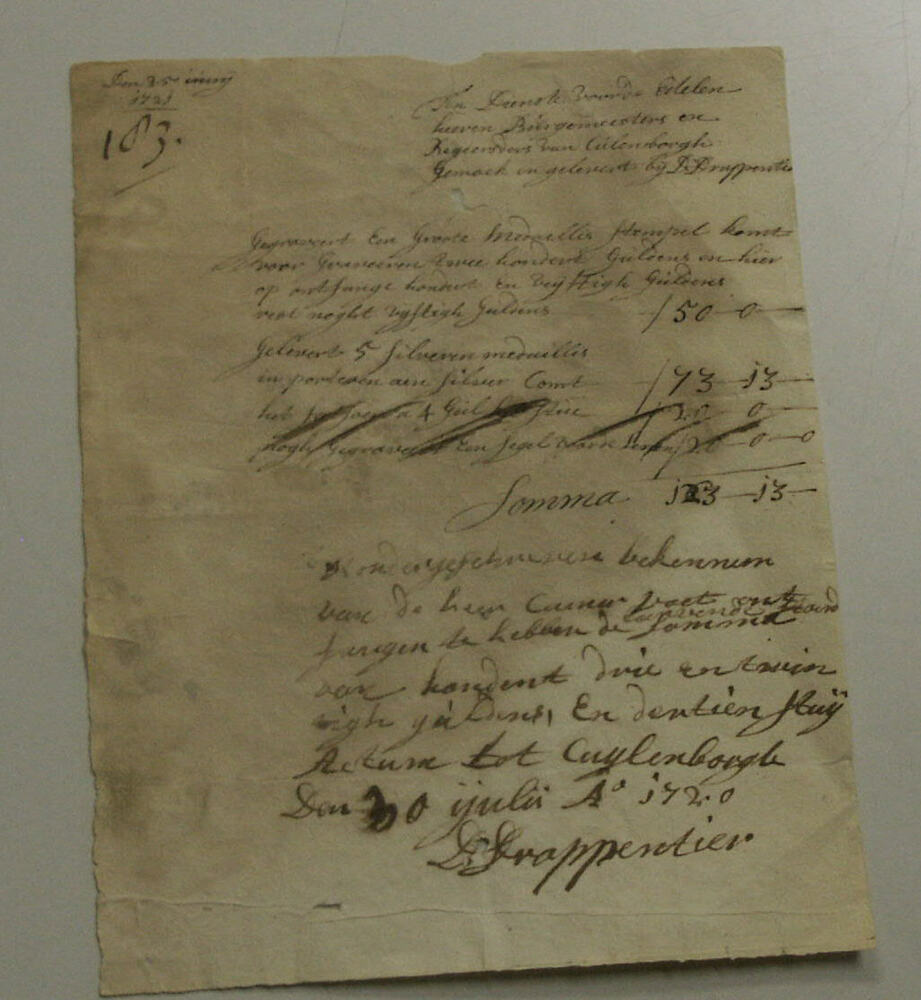 Den 25 iunij
1721
183.
Ten Dienste voorde Edelen
heeren Bürgemeesters en
Regeerders van Cülenborgh
Gemaek en gelevert bij D. Drappentier
Gegraveert Een Groote Medaellis stempel komt
voor Graveeren twee hondert Guldens en hier
op ontfange hondert en vijftigh Güldens
rest noght vijftigh Guldens / 50 - 0 -
Gelevert 5 silveren medaillis
in porteren aen silver Comt / 73 - 13 -
het fatsoen a 4 Gul 20 - 0 -
nogh gegraveert Een segel 20 - 0 - 0
Somma 123 - 13 -
ondergeschreven bekennen
van de heer Cuner voet ont
fangen te hebben de somma
van hondert drie en twin
tigh gúldens, En dertien stuÿ
Actum tot Cuylenborgh
Den 30 ijulij Aº 1720
D. Drappentier